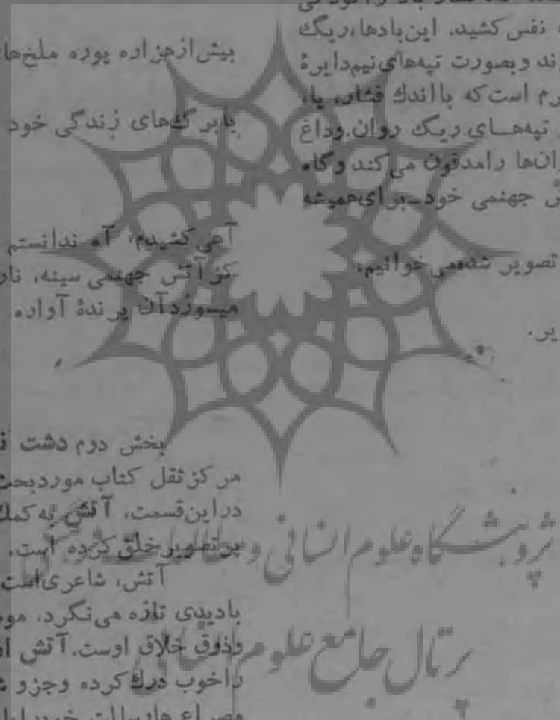 نفس کشید. این بادها، ریگ
رند و بصورت تپه‌های نیم‌دایرهٔ
رم است که با اندك فشار، پا،
تپه‌هــای ریگ روان. وداغ
وان‌ها را مدفون می کند وگاه
ش جهنمی خود ـ برای همیشه
تصویر شده می خوانیم:
یر.
بیش از هزاره پوره ملخ‌ها
بابرگ‌های زندگی خود
آهی کشیدم، آه ندانستم
کز آتش جهنمی سینه، نا
میسوزد آن پرندهٔ آواره
بخش دوم دشت
مرکز ثقل کتاب مورد بحث
در این قسمت، آتش به کمك
پرتصویر خلق کرده است.
آتش، شاعری است
بادیدی تازه می نگرد. مو
وذوق خلاق اوست. آتش
را خوب درك کرده وجزو
پژوهشگاه علوم انسانی و مطالعات فرهنگی
پرتال جامع علوم انسانی